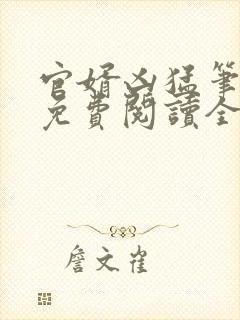 官婿凶猛筆
免費閱讀全
詹文雀